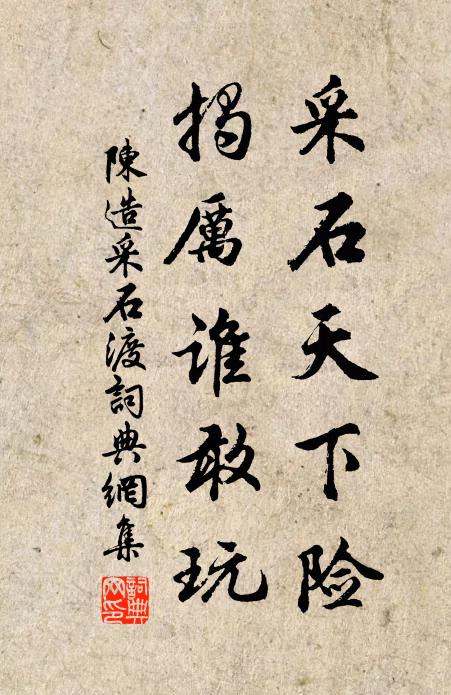 采石天下险
揭厲谁敢玩
陳造采石渡詞典網集
詞典网印